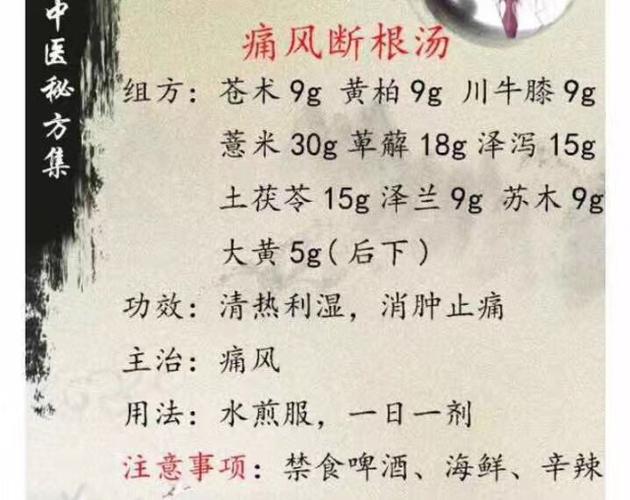 中医秘方集
痛风断根汤
组方：苍术 9g 黄柏 9g 川牛膝 9g
薏米 30g 萆薢 18g 泽泻 15g
土茯苓 15g 泽兰 9g 苏木 9g
大黄 5g（后下）
功效：清热利湿，消肿止痛
主治：痛风
用法：水煎服，一日一剂
注意事项：禁食啤酒、海鲜、辛辣